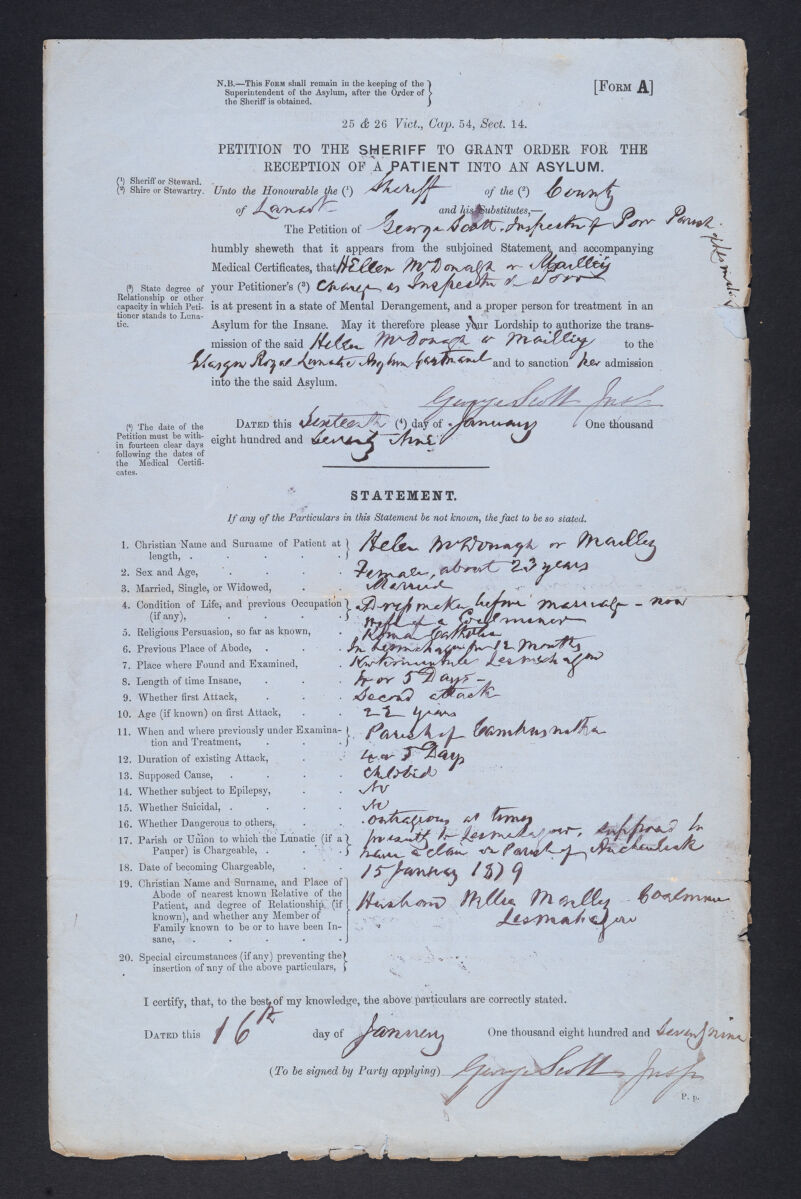 N.B.—This Form shall remain in the keeping of the
Superintendent of the Asylum, after the Order of
the Sheriff is obtained.
[Form A]
25 & 26 Vict., Cap. 54, Sect. 14.
PETITION TO THE SHERIFF TO GRANT ORDER FOR THE
RECEPTION OF A PATIENT INTO AN ASYLUM.
(¹) Sheriff or Steward.
(²) Shire or Stewartry.
Unto the Honourable the (¹) Sheriff of the (²) County
of Lanark and his Substitutes,—
The Petition of George Scott, Inspector of Poor Parish
of Lesmahagow
humbly sheweth that it appears from the subjoined Statement, and accompanying
Medical Certificates, that Hellen McDonagh or Mailley
(³) State degree of
Relationship or other
capacity in which Peti-
tioner stands to Luna-
tic.
your Petitioner's (³) Charge as Inspector of Poor
is at present in a state of Mental Derangement, and a proper person for treatment in an
Asylum for the Insane. May it therefore please your Lordship to authorize the trans-
mission of the said Helen McDonagh or Mailley to the
Glasgow Royal Lunatic Asylum Gartnavel and to sanction her admission
into the the said Asylum.
George Scott Insp
(⁴) The date of the
Petition must be with-
in fourteen clear days
following the dates of
the Medical Certifi-
cates.
Dated this Sixteenth (⁴) day of January One thousand
eight hundred and Seventy Nine
STATEMENT.
If any of the Particulars in this Statement be not known, the fact to be so stated.
1. Christian Name and Surname of Patient at
length, . Helen McDonagh or Mailley
2. Sex and Age, Female, about 23 years
3. Married, Single, or Widowed, Married
4. Condition of Life, and previous Occupation
(if any), Dressmaker before marriage - now
wife of a Coalminer
5. Religious Persuasion, so far as known, Roman Catholic
6. Previous Place of Abode, In Lesmahagow for 12 months
7. Place where Found and Examined, Lesmahagow
8. Length of time Insane, 4 or 5 Days -
9. Whether first Attack, Second attack
10. Age (if known) on first Attack, 22 years
11. When and where previously under Examina-
tion and Treatment, Parish of Cambusnethan
12. Duration of existing Attack, 4 or 5 Days
13. Supposed Cause, Childbed
14. Whether subject to Epilepsy, No
15. Whether Suicidal, No
16. Whether Dangerous to others, outrageous at times
17. Parish or Union to which the Lunatic (if a
Pauper) is Chargeable, presently to Lesmahagow, supposed to
have a claim on Parish of Auchinleck
18. Date of becoming Chargeable, 15 January 1879
19. Christian Name and Surname, and Place of
Abode of nearest known Relative of the
Patient, and degree of Relationship (if
known), and whether any Member of
Family known to be or to have been In-
sane, Husband Mailley Coalminer
Lesmahagow
20. Special circumstances (if any) preventing the
insertion of any of the above particulars,
I certify, that, to the best of my knowledge, the above particulars are correctly stated.
Dated this 16th day of January One thousand eight hundred and Seventy nine
(To be signed by Party applying) George Scott Insp
P. p.